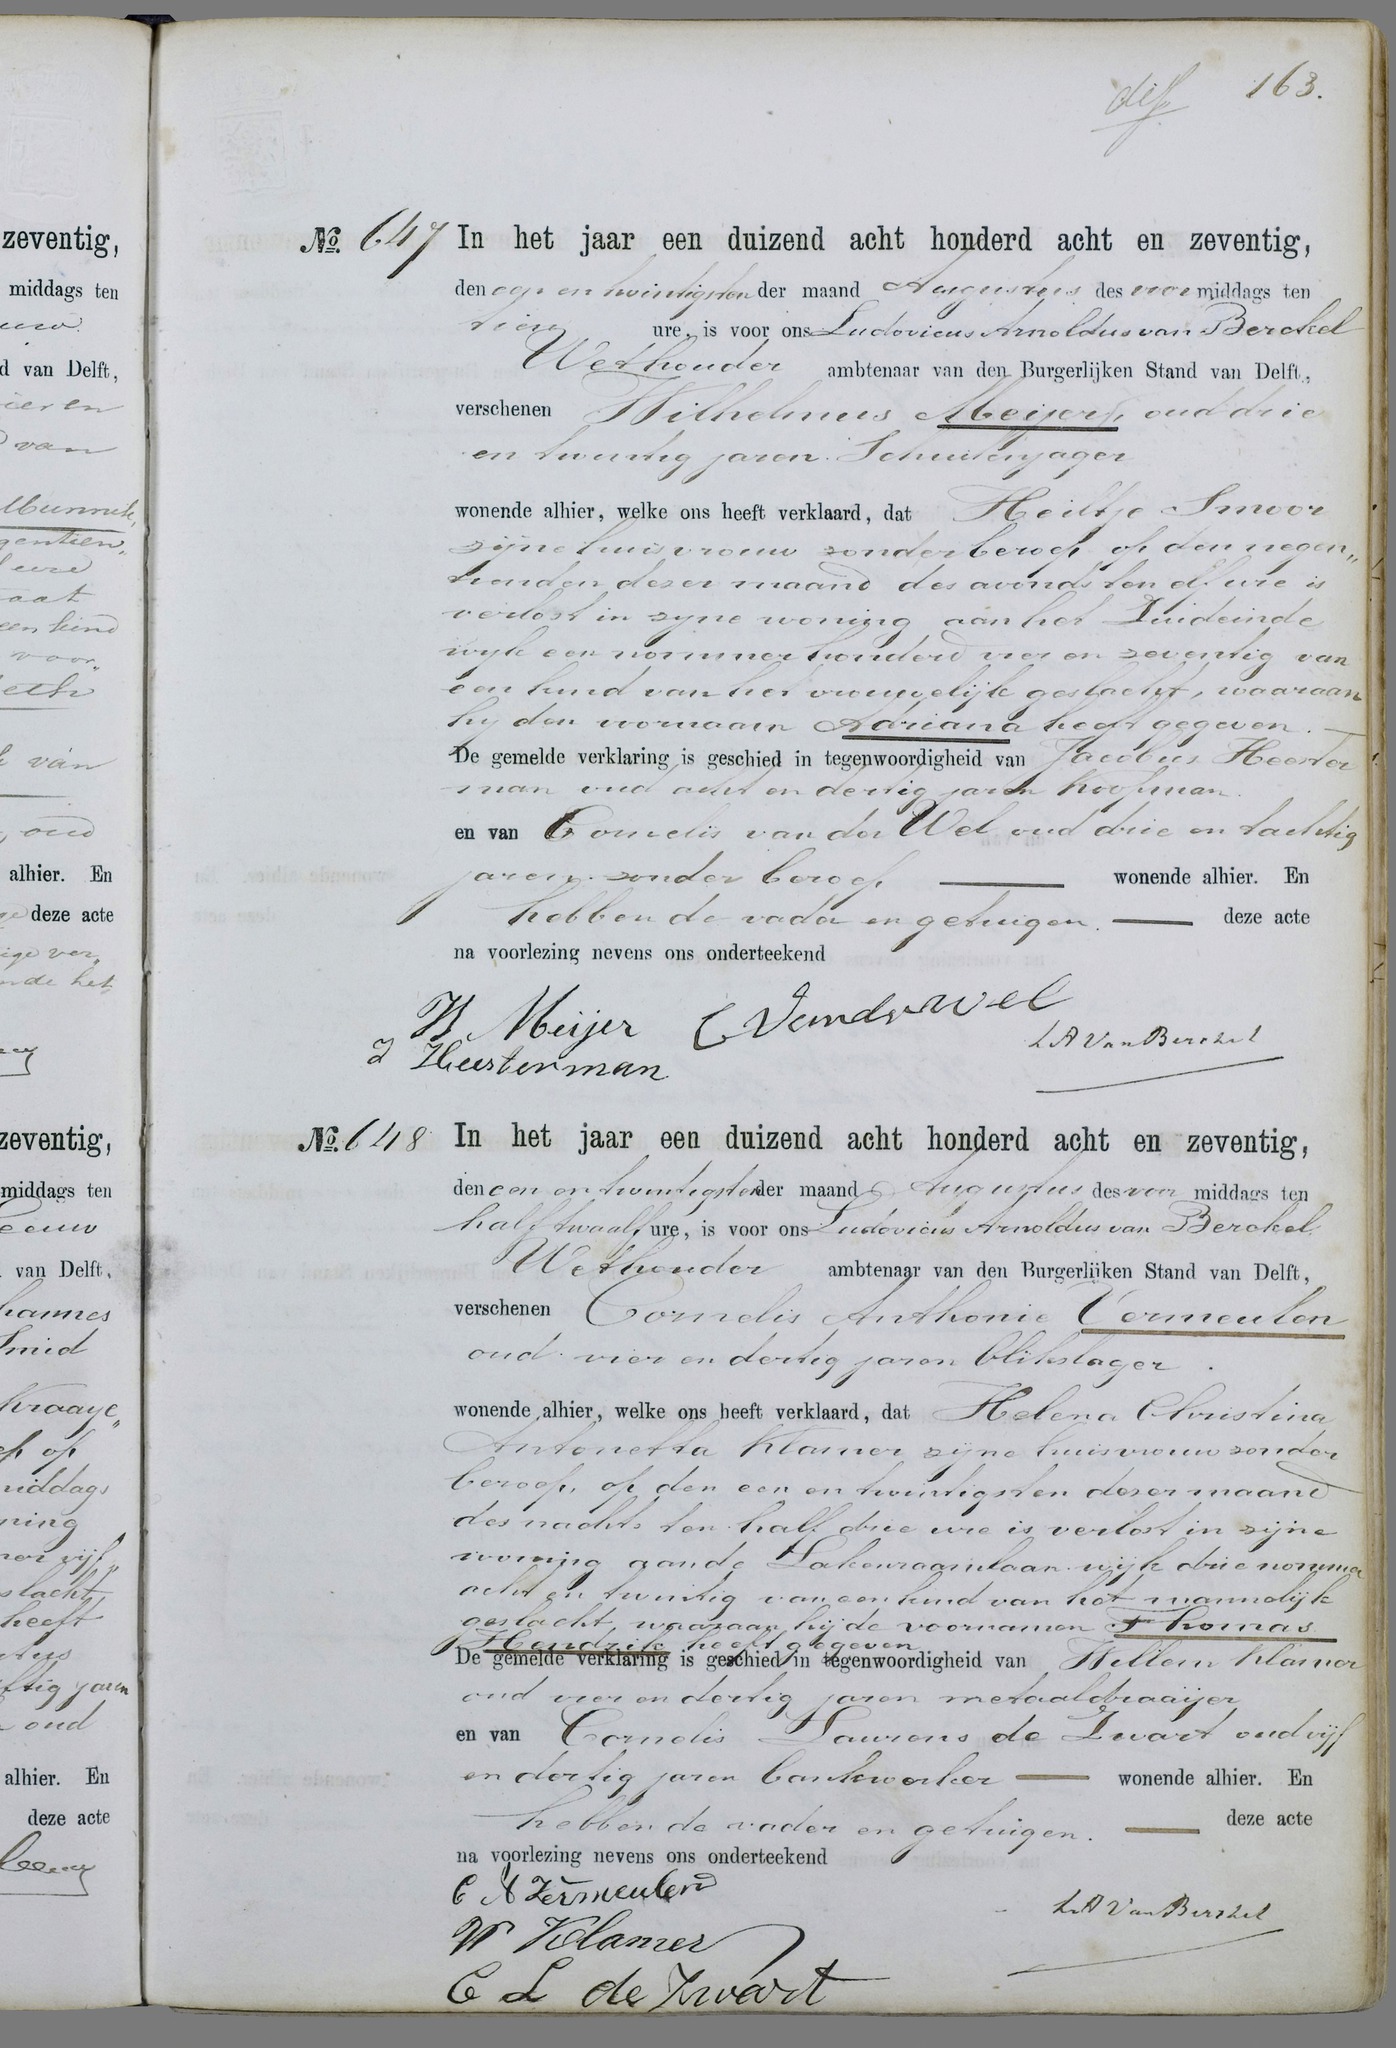 163.
No. 647 In het jaar een duizend acht honderd acht en zeventig,
den een en twintigsten der maand Augustus des voormiddags ten
tien ure, is voor ons Ludovicus Arnoldus van Berckel
Wethouder ambtenaar van den Burgerlijken Stand van Delft,
verschenen Wilhelmus Meijer, oud drie
en twintig jaren. Schuitenjager
wonende alhier, welke ons heeft verklaard, dat Heiltje Smoor
zijne huisvrouw zonder beroep op den negen„
tienden dezer maand des avonds ten elf ure is
verlost in zijne woning aan het Zuideinde
wijk een nommer honderd vier en zeventig van
een kind van het vrouwelijk geslacht, waaraan
hij den voornaam Adriana heeft gegeven.
De gemelde verklaring is geschied in tegenwoordigheid van Jacobus Heester
man oud acht en dertig jaren Koopman.
en van Cornelis van der Wel oud drie en tachtig
jaren. zonder beroep wonende alhier. En
hebben de vader en getuigen. deze acte
na voorlezing nevens ons onderteekend
W Meijer C Vanderwel
L A Van Berckel
J Heesterman
No. 648 In het jaar een duizend acht honderd acht en zeventig,
den een en twintigsten der maand Augustus des voor middags ten
half twaalf ure, is voor ons Ludovicus Arnoldus van Berckel
Wethouder ambtenaar van den Burgerlijken Stand van Delft,
verschenen Cornelis Anthonie Vermeulen
oud vier en dertig jaren blikslager.
wonende alhier, welke ons heeft verklaard, dat Helena Christina
Antonetta Klamer zijne huisvrouw zonder
beroep, op den een en twintigsten dezer maand
des nachts ten half drie ure is verlost in zijne
woning aan de Lakenraamlaan wijk drie nommer
acht en twintig van een kind van het mannelijk
geslacht, waaraan hij de voornamen Thomas
Hendrik heeft gegeven
De gemelde verklaring is geschied in tegenwoordigheid van Willem Klamer
oud vier en dertig jaren metaaldraaijer
en van Cornelis Laurens de Zwart oud vijf
en dertig jaren bankwerker wonende alhier. En
hebben de vader en getuigen. deze acte
na voorlezing nevens ons onderteekend
C A Vermeulen
L A Van Berckel
W Klamer
C L de Zwart